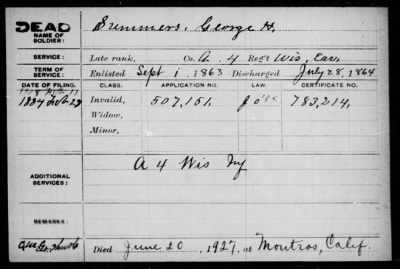 DEAD
NAME OF SOLDIER:
Summers, George H.
SERVICE:
Late rank, Co. A. 4 Reg't Wis. Cav.
TERM OF SERVICE:
Enlisted Sept 1, 1863 Discharged July 28, 1864
DATE OF FILING. CLASS. APPLICATION NO. LAW. CERTIFICATE NO.
1884 Invalid, 507,151, 783,214,
Widow,
Minor,
A 4 Wis Inf
ADDITIONAL SERVICES:
REMARKS:
Died June 20, 1927, at Montros, Calif.